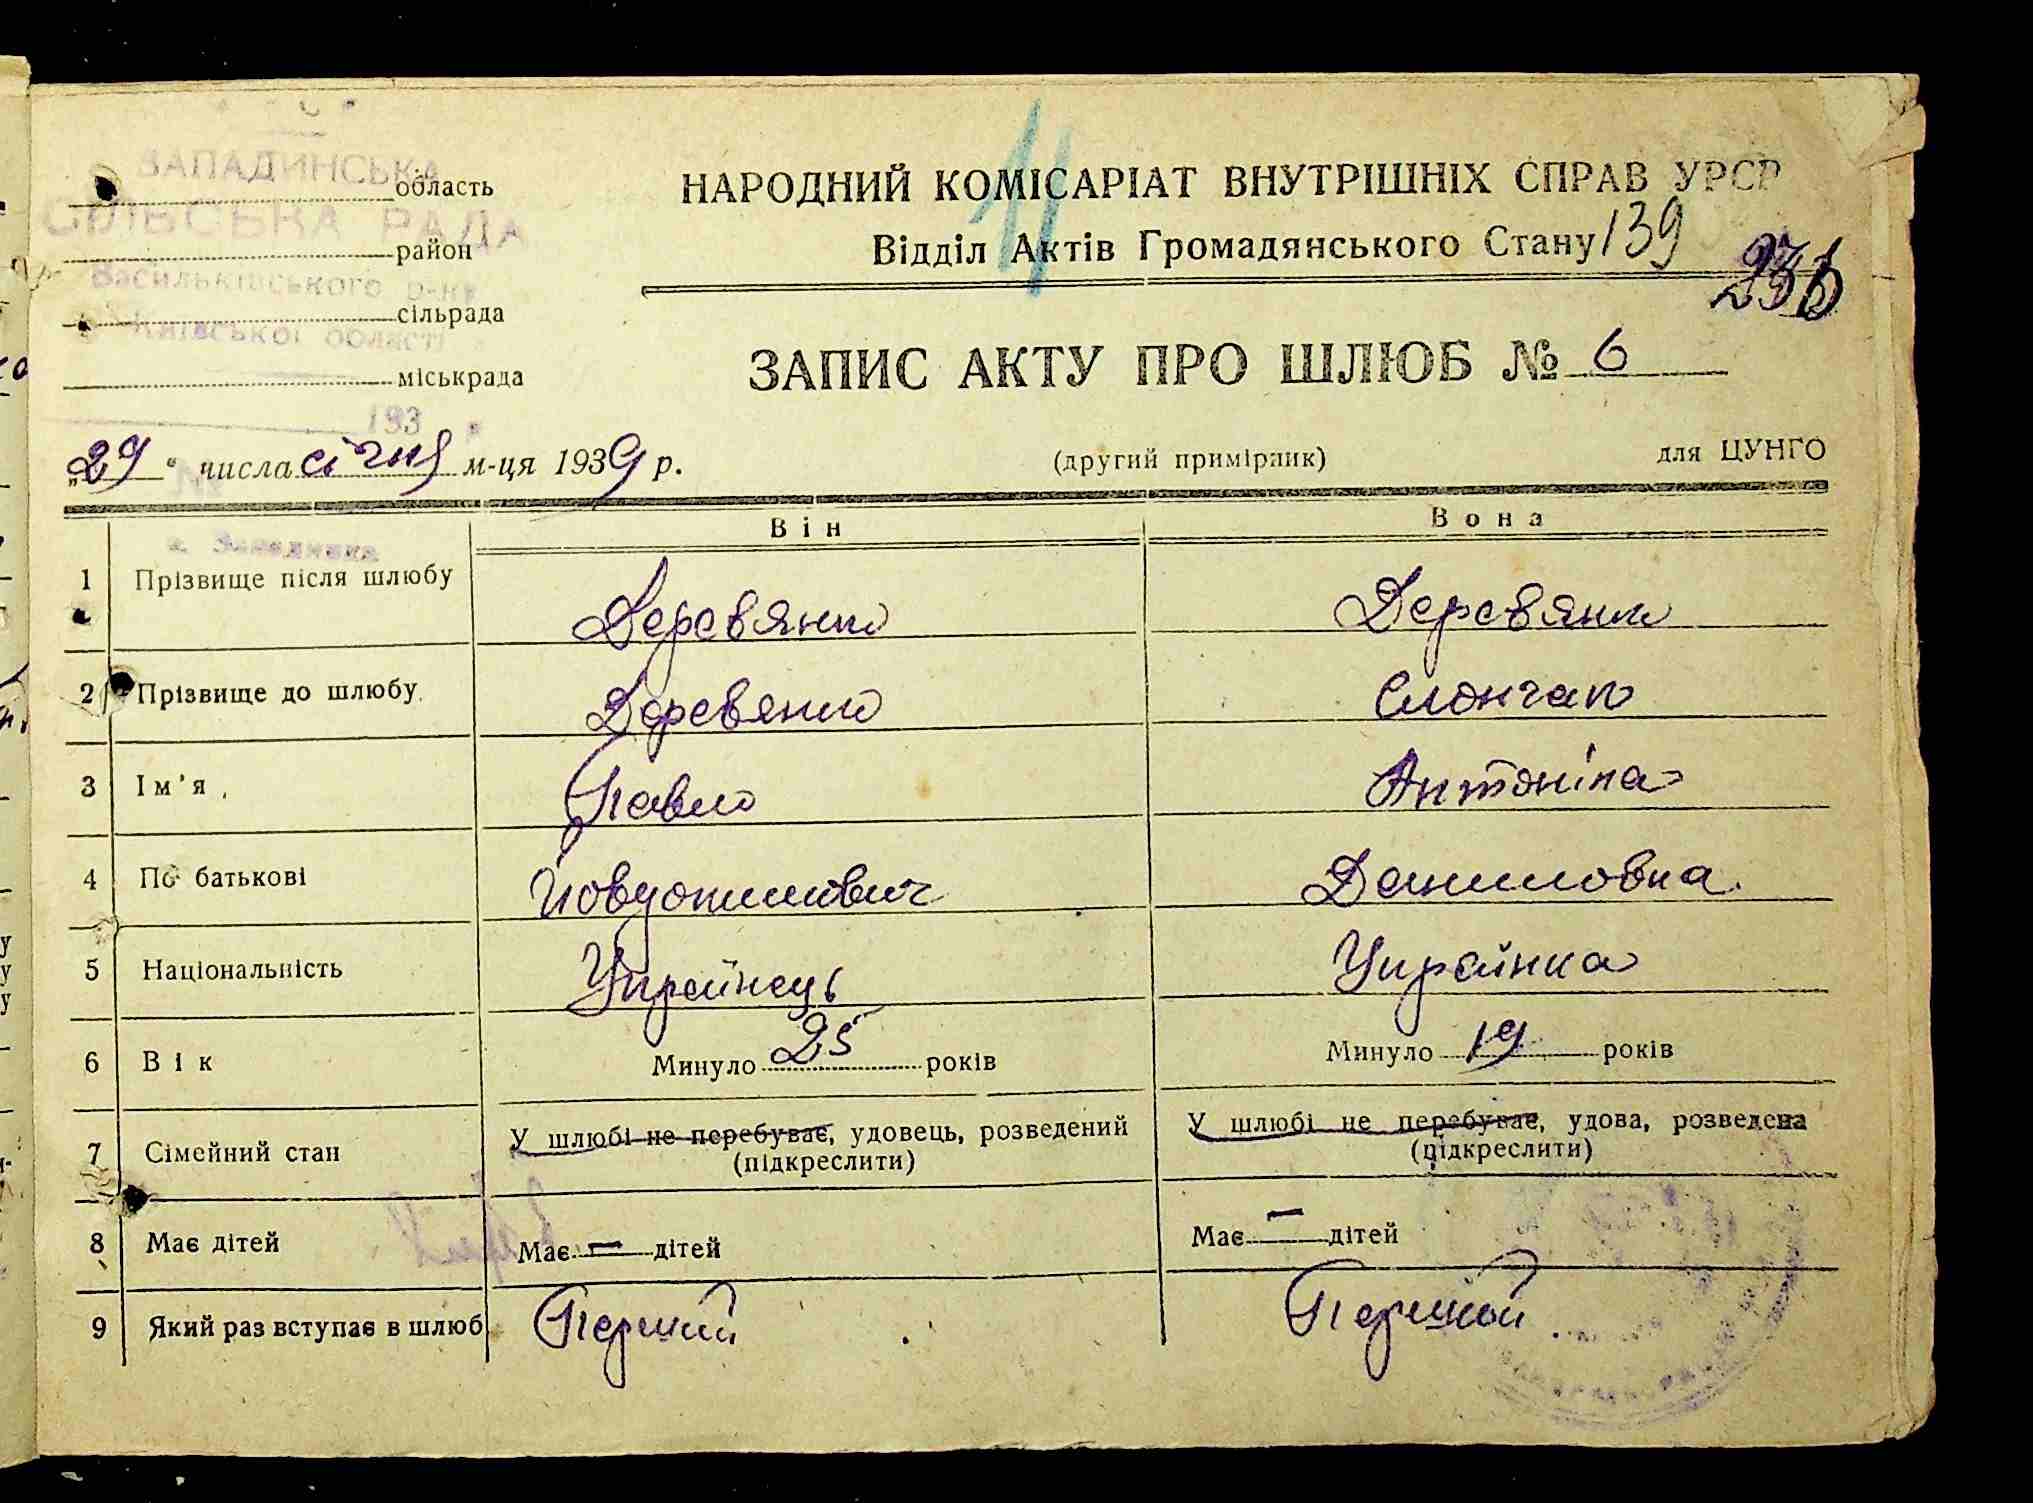 ЗАПАДИНСЬКА
СІЛЬСЬКА РАДА
Васильківського р-ну
Київської області
193 р.
№
с. Западинка
область
район
сільрада
міськрада
11
НАРОДНИЙ КОМІСАРІАТ ВНУТРІШНІХ СПРАВ УРСР
Відділ Актів Громадянського Стану 139
ЗАПИС АКТУ ПРО ШЛЮБ № 6
„29“ числа січня м-ця 1939 р.
(другий примірник) для ЦУНГО
Він Вона
1 Прізвище після шлюбу Деревянко Деревянко
2 Прізвище до шлюбу Деревянко Слончак
3 Ім'я Павло Антоніна
4 По батькові Даниловна
5 Національність Українець Українка
6 Вік Минуло 25 років Минуло 19 років
7 Сімейний стан У шлюбі не перебуває, удовець, розведений У шлюбі не перебуває, удова, розведена
(підкреслити) (підкреслити)
8 Має дітей Має — дітей Має — дітей
9 Який раз вступає в шлюб Перший Першой